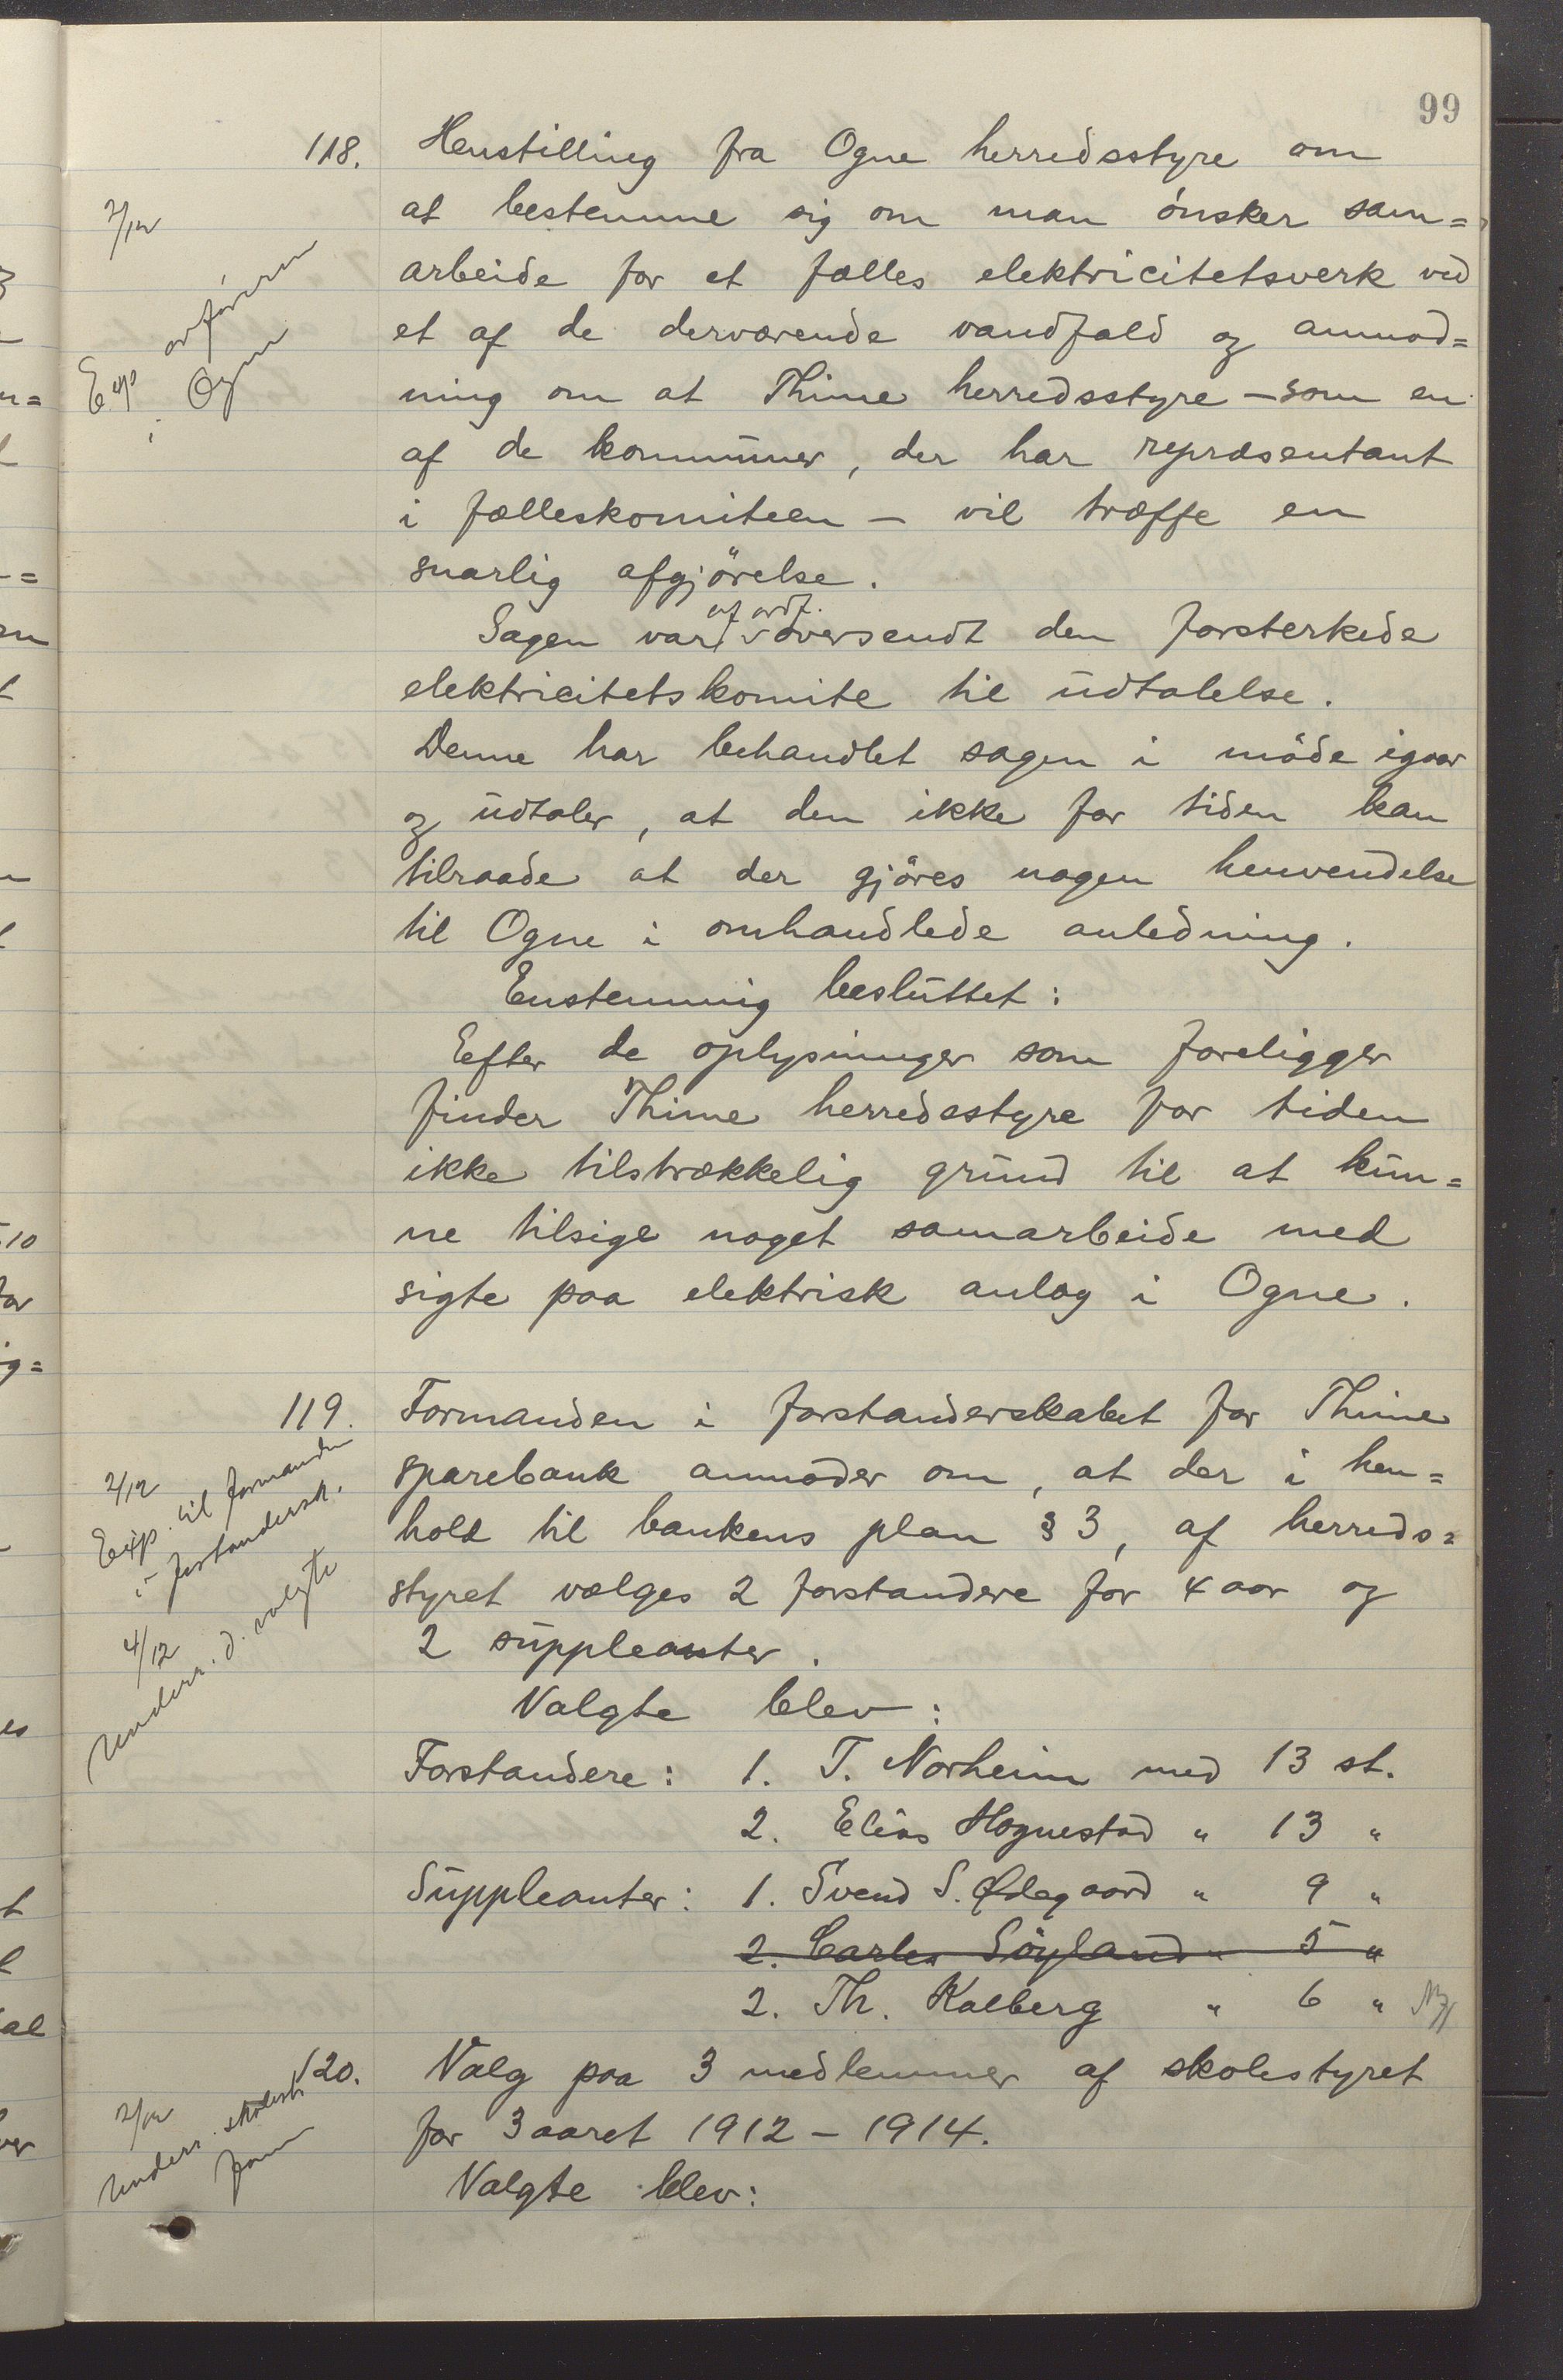 99
118. Henstilling fra Ogne herredsstyre om
2/12
at bestemme sig om man ønsker sam=
arbeide for et fælles elektricitetsverk ved
et af de derværende vandfald og anmod=
Exp ordføreren
i Ogne
ning om at Thime herredsstyre – som en
af de kommuner, der har repræsentant
i fælleskomiteen – vil træffe en
snarlig afgjörelse.
Sagen var af ordf. oversendt den forsterkede
elektricitetskomite til udtalelse.
Denne har behandlet sagen i möde igaar
og udtaler, at den ikke for tiden kan
tilraade at der gjöres nogen henvendelse
til Ogne i omhandlede anledning.
Enstemmig besluttet:
Efter de oplysninger som foreligger
finder Thime herredsstyre for tiden
ikke tilstrækkelig grund til at kun=
ne tilsige noget samarbeide med
sigte paa elektrisk anlæg i Ogne.
119. Formanden i forstanderskabet for Thime
2/12
Exp. til formanden
i forstandersk.
sparebank anmoder om, at der i hen=
hold til bankens plan § 3, af herreds=
styret vælges 2 forstandere for 4 aar og
4/12
Underr. d. valgte
2 suppleanter.
Valgte blev:
Forstandere: 1. T. Norheim med 13 st.
2. Elias Hognestad " 13 "
Suppleanter: 1. Svend S. Ødegaard " 9 "
2. Carlen Söyland " 5 "
2. Th. Kalberg " 6 "
120. Valg paa 3 medlemmer af skolestyret
2/12
Underr. skolest.
form
for 3aaret 1912 – 1914.
Valgte blev: